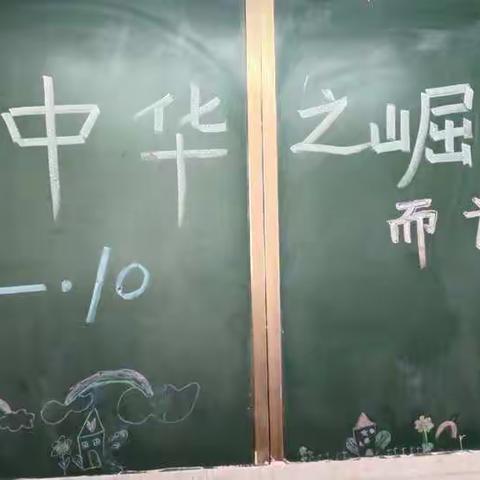 中华之崛
而
一·10